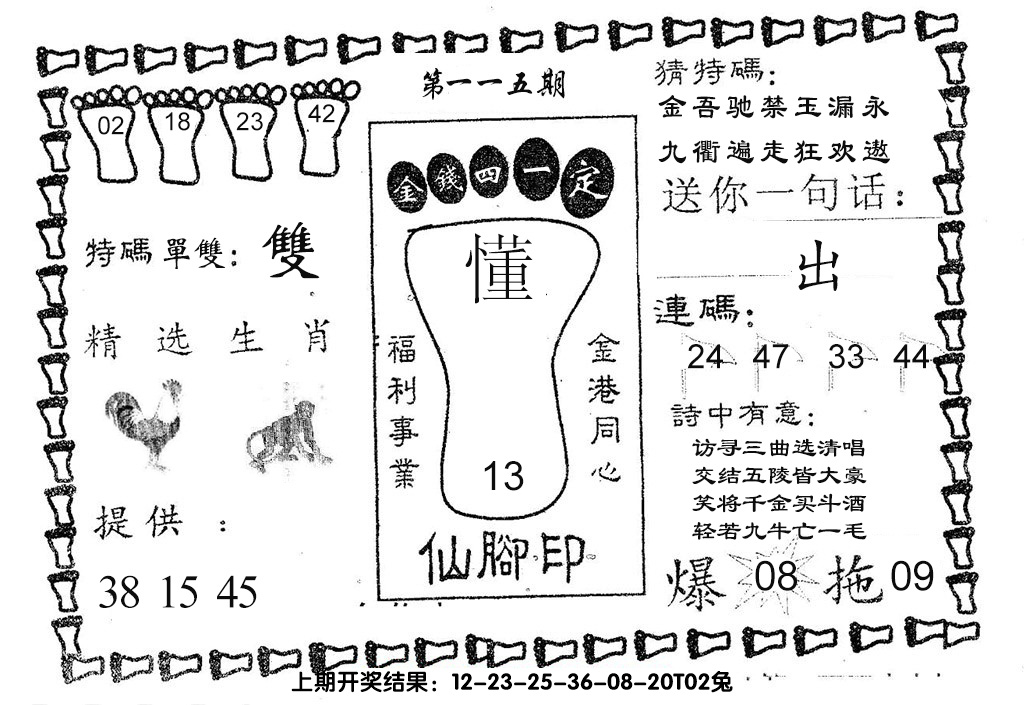 第一一五期
02 18 23 42
特碼單雙：雙
精选生肖
提供：
38 15 45
金錢四一定
懂
福利事業
金港同心
13
仙腳印
猜特碼：
金吾驰禁玉漏永
九衢遍走狂欢遨
送你一句话：
出
連碼：
24 47 33 44
詩中有意：
访寻三曲选清唱
交结五陵皆大豪
笑将千金买斗酒
轻若九牛亡一毛
爆 08 拖 09
上期开奖结果：12-23-25-36-08-20T02兔